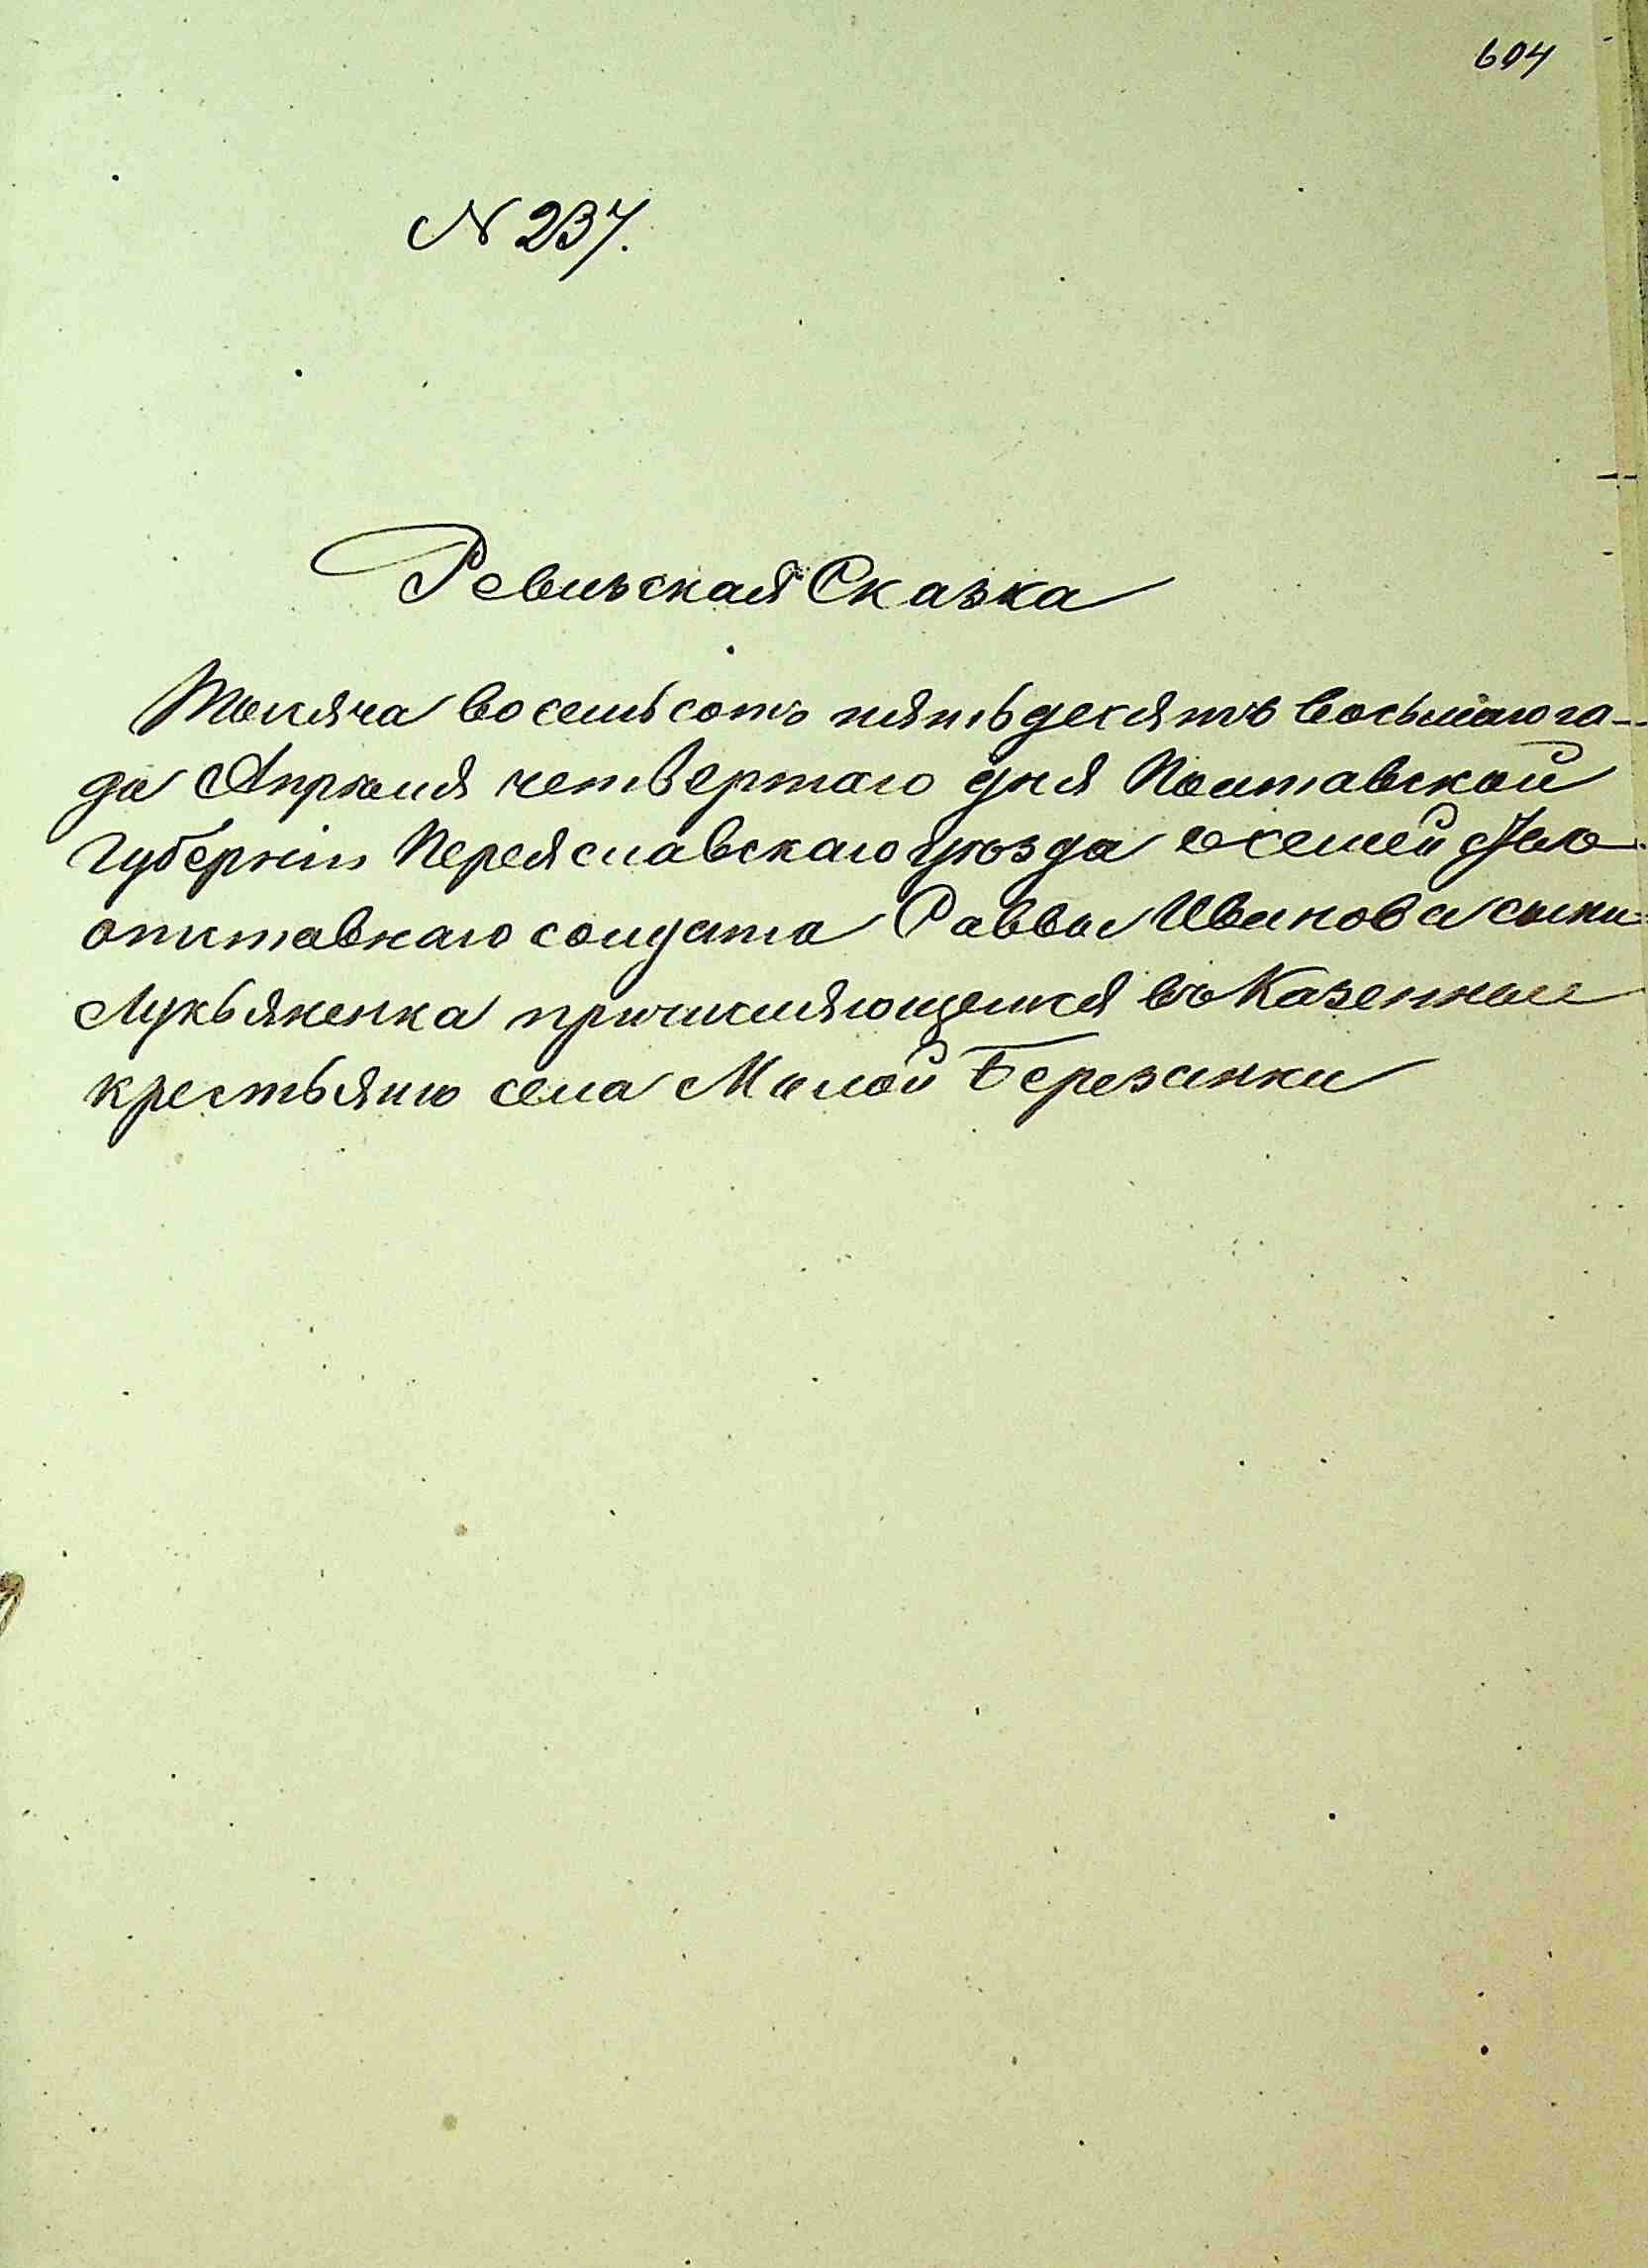 604
N 237.
Ревизская Сказка
Тысяча восемьсотъ пятьдесятъ восьмаго го-
да Апрѣля четвертаго дня Полтавской
Губерніи Переяславскаго уѣзда о семей
отставнаго солдата Саввы Иванова сына
Лукьяненка причисляющемся въ Казенные
крестьяне села Малой Березанки